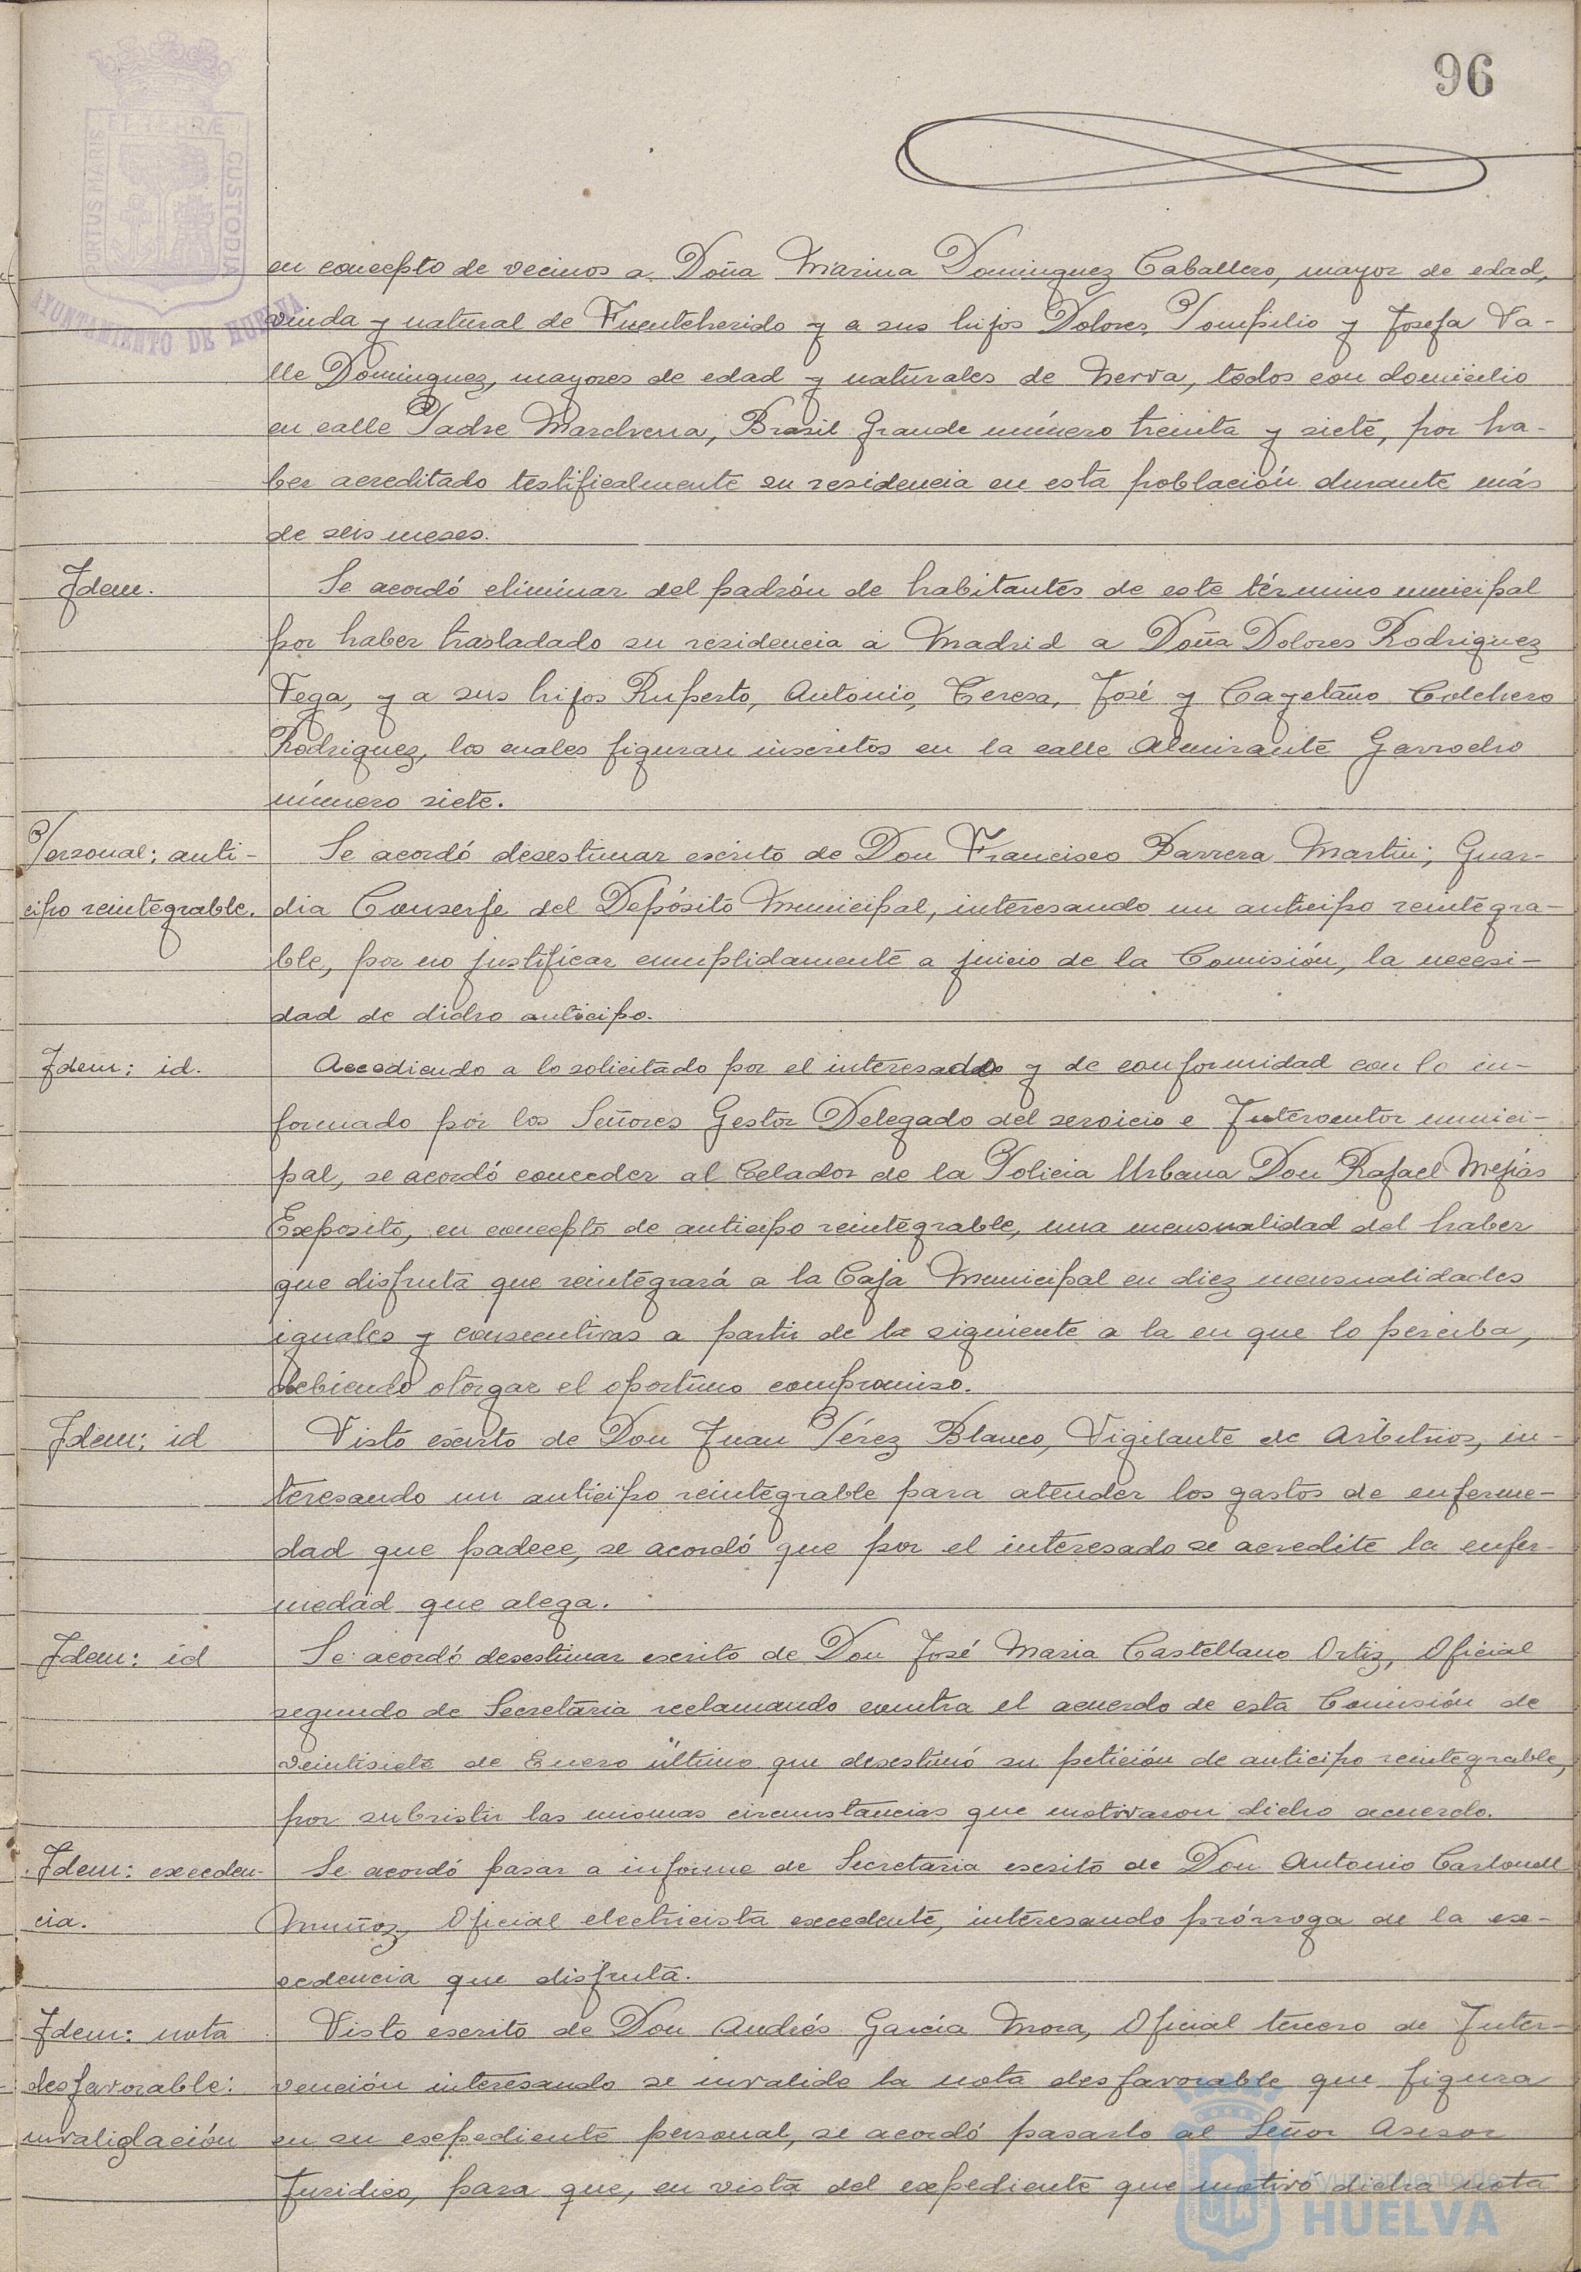 96
PORTUS MARIS ET TERRÆ CUSTODIA
AYUNTAMIENTO DE HUELVA
en concepto de vecinos a Doña Marina Dominguez Caballero, mayor de edad,
viuda y natural de Fuenteherido y a sus hijos Dolores, Pompilio y Josefa Va-
lle Dominguez, mayores de edad y naturales de Nerva, todos con domicilio
en calle Padre Marchena, Brasil Grande número treinta y siete, por ha-
ber acreditado testificalmente su residencia en esta población durante más
de seis meses.
Idem.
Se acordó eliminar del padrón de habitantes de este término municipal
por haber trasladado su residencia a Madrid a Doña Dolores Rodriguez
Vega, y a sus hijos Ruperto, Antonio, Teresa, José y Cayetano Colchero
Rodriguez, los cuales figuran inscritos en la calle Almirante Garrocho
número siete.
Personal; anti-
cipo reintegrable.
Se acordó desestimar escrito de Don Francisco Barrera Martin; Guar-
dia Conserje del Depósito Municipal, interesando un anticipo reintegra-
ble, por no justificar cumplidamente a juicio de la Comisión, la necesi-
dad de dicho anticipo.
Idem: id.
Accediendo a lo solicitado por el interesado y de conformidad con lo in-
formado por los Señores Gestor Delegado del servicio e Interventor munici-
pal, se acordó conceder al Celador de la Policia Urbana Don Rafael Mejias
Exposito, en concepto de anticipo reintegrable, una mensualidad del haber
que disfruta que reintegrará a la Caja Municipal en diez mensualidades
iguales y consecutivas a partir de la siguiente a la en que lo perciba,
debiendo otorgar el oportuno compromiso.
Idem; id
Visto escrito de Don Juan Pérez Blanco, Vigilante de Arbitrios, in-
teresando un anticipo reintegrable para atender los gastos de enferme-
dad que padece, se acordó que por el interesado se acredite la enfer-
medad que alega.
Idem: id
Se acordó desestimar escrito de Don José Maria Castellano Ortiz, Oficial
segundo de Secretaria reclamando contra el acuerdo de esta Comisión de
veintisiete de Enero último que desestimó su petición de anticipo reintegrable,
por subsistir las mismas circunstancias que motivaron dicho acuerdo.
Idem: exceden-
cia.
Se acordó pasar a informe de Secretaria escrito de Don Antonio Carbonell
Muñoz, Oficial electricista excedente, interesando prórroga de la ex-
cedencia que disfruta.
Idem: nota
desfavorable:
invalidación
Visto escrito de Don Andrés García Mora, Oficial tercero de Inter-
vención interesando se invalide la nota desfavorable que figura
en su expediente personal, se acordó pasarlo al Señor Asesor
Juridico, para que, en vista del expediente que motivó dicha nota
Ayuntamiento de
HUELVA